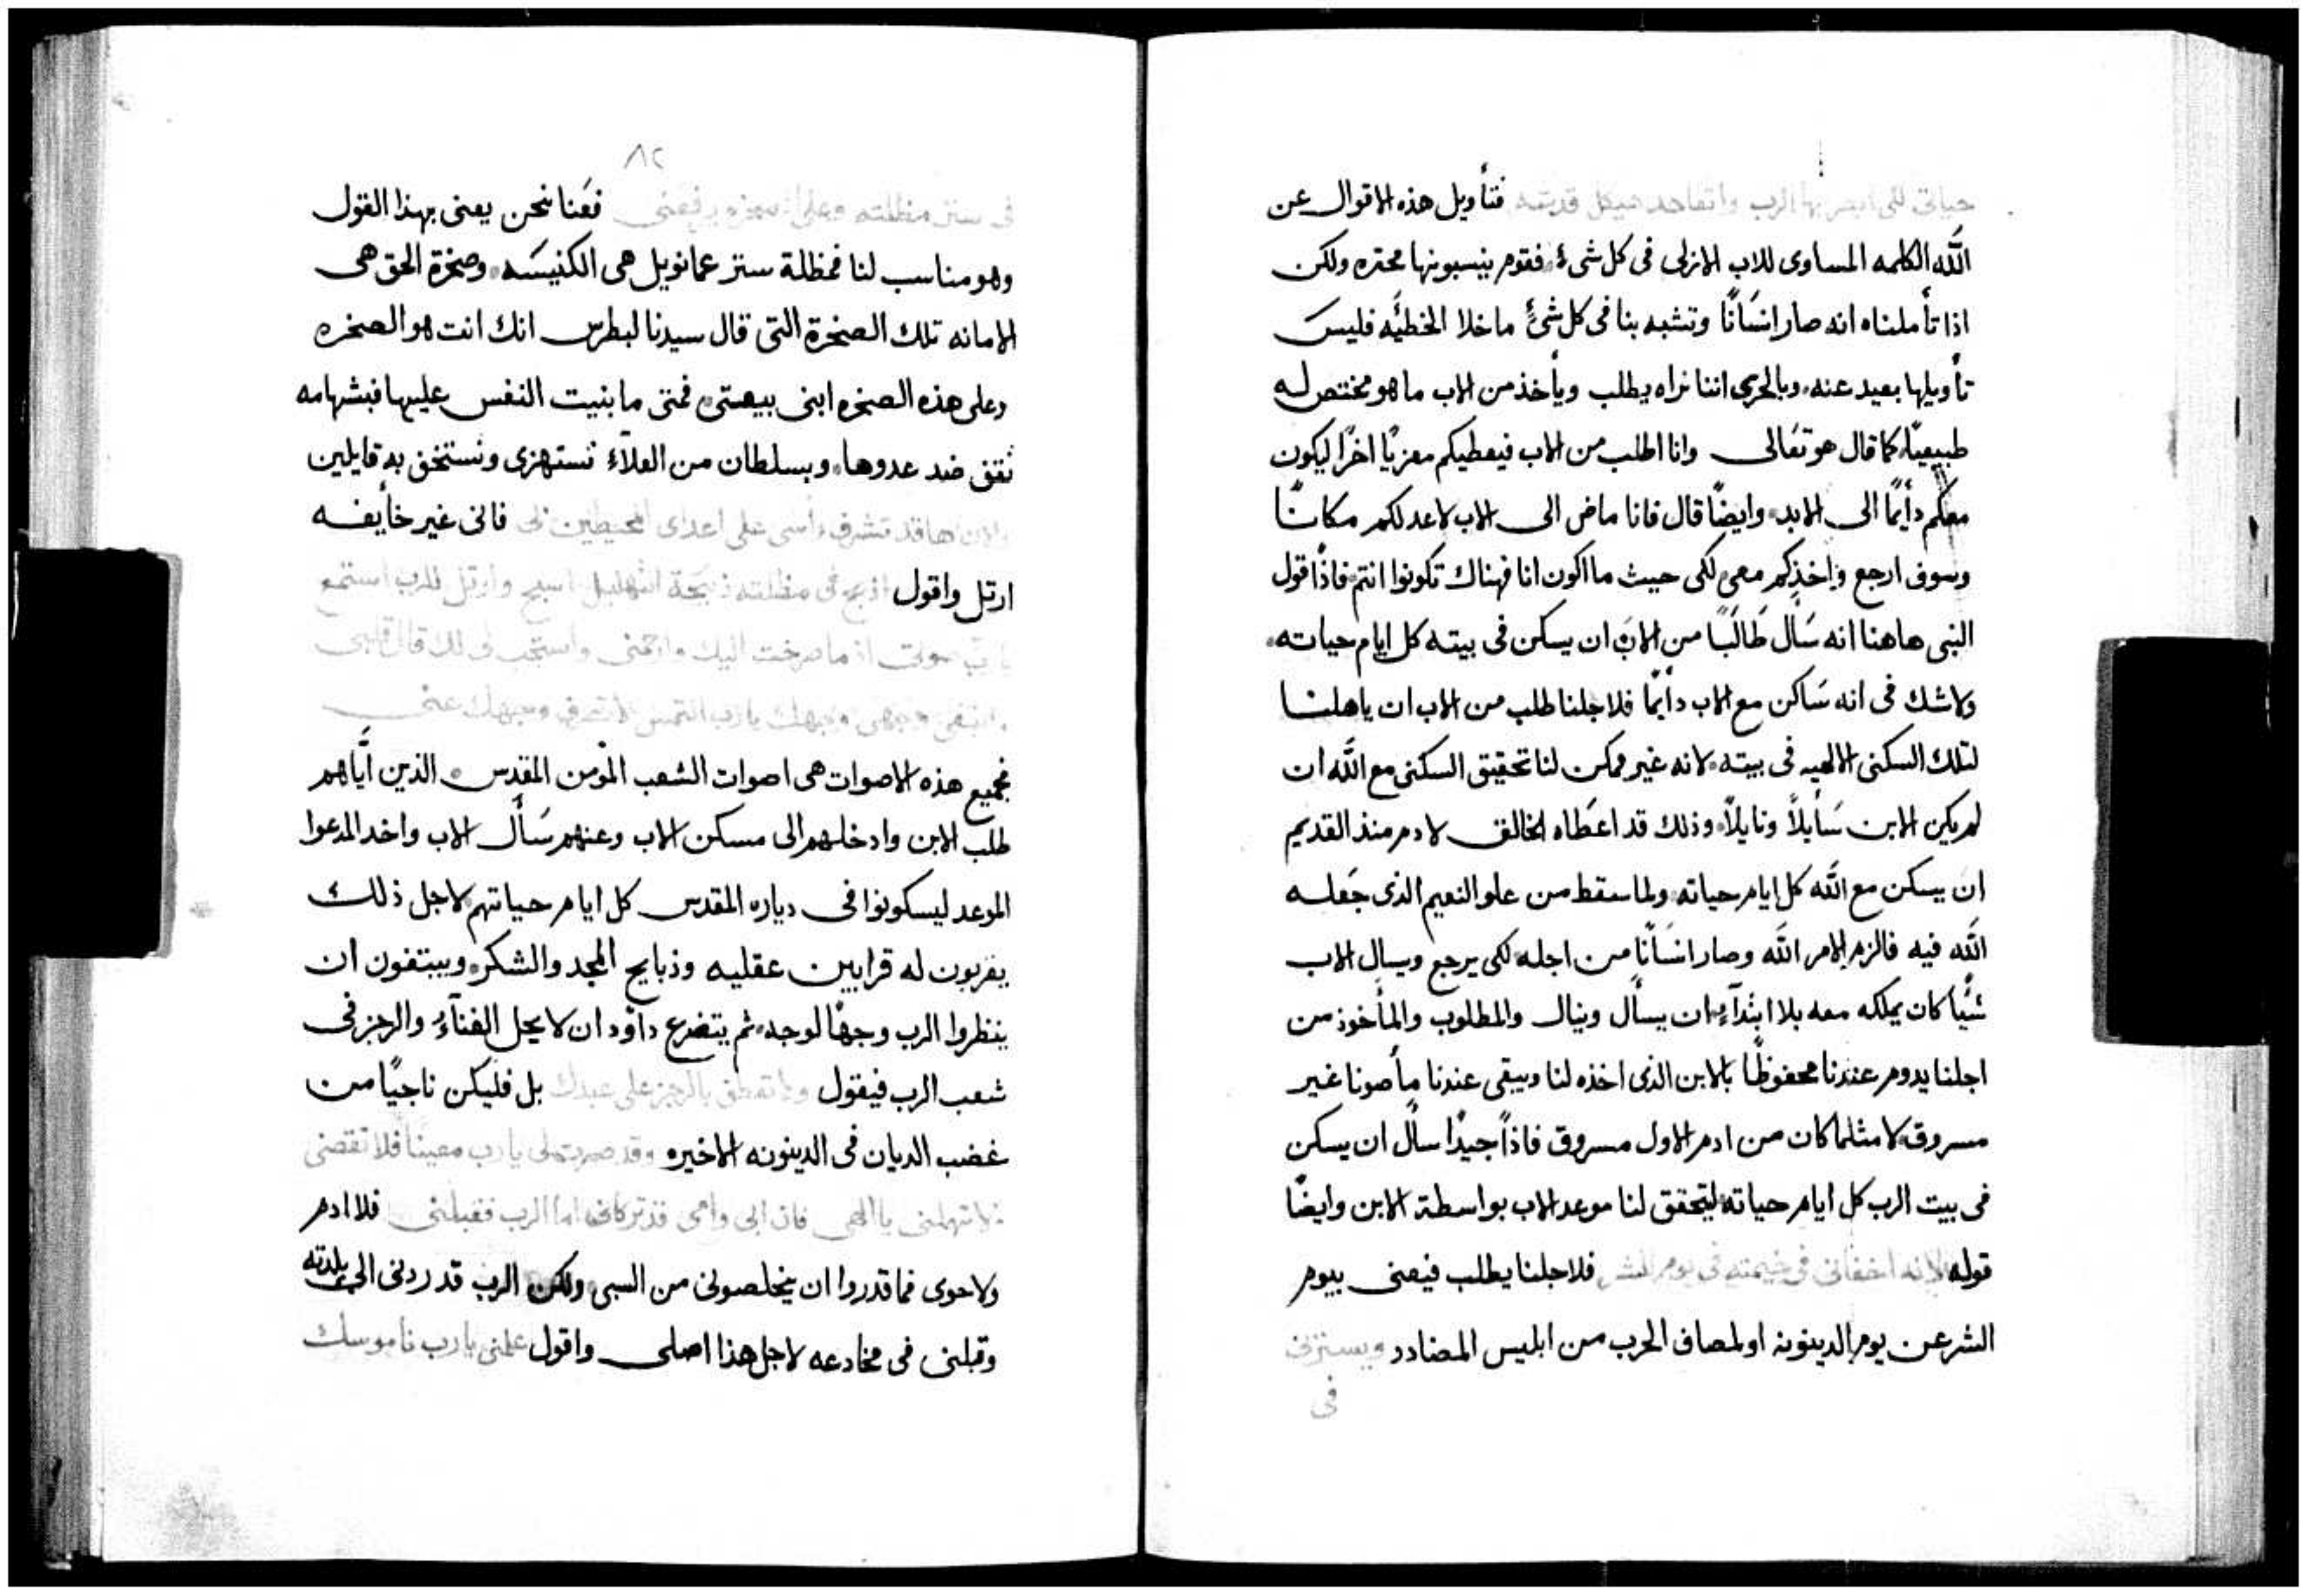 حياتى للى ابصر بها الرب واتعاهد هيكل قدسه فتأويل هذه الاقوال عن
الله الكلمه المساوى للاب الازلى فى كل شىء فقوم ينسبونها محتره ولكن
اذا تأملناه انه صار انسَانًا وتشبه بنا فى كل شىءٍ ما خلا الخطيَّه فليس
تأويلها بعيد عنه وبالحرى اننا نراه يطلب ويأخذ من الاب ما هو مختص له
طبيعيًا كما قال هو تعَالى وانا اطلب من الاب فيعطيكم معزيًا اخرًا ليكون
معكم دأيمًا الى الابد وايضًا قال فانا ماض الى الاب لاعد لكم مكانًا
وسوف ارجع واخذكم معى لكى حيث ما اكون انا فهناك تكونوا انتم فاذًا قول
النبى هاهنا انه سَأل طَالبًا من الاب ان يسكن فى بيته كل ايام حياته
ولاشك فى انه سَاكن مع الاب دأيمًا فلاجلنا طلب من الاب ان ياهلنا
لتلك السكنى الالهيه فى بيته لانه غير ممكن لنا تحقيق السكنى مع الله ان
لم يكن الابن سَأيلًا ونايلًا وذلك قد اعطَاه الخالق لادم منذ القديم
ان يسكن مع الله كل ايام حياته ولما سقط من علو النعيم الذى جَعله
الله فيه فالزم الامر الله وصار انسَانًا من اجله لكى يرجع ويسال الاب
شيًا كان يملكه معه بلا ابتدآءٍ ان يسأل وينال والمطلوب والمأخوذ من
اجلنا يدوم عندنا محفوظًا بالابن الذى اخذه لنا ويبقى عندنا مأصونا غير
مسروق لا مثلما كان من ادم الاول مسروق فاذًا جيدًا سأل ان يسكن
فى بيت الرب كل ايام حياته ليتحقق لنا موعد الاب بواسطة الابن وايضًا
قوله لانه اخفانى فى خيمته فى يوم الشر فلاجلنا يطلب فيعنى بيوم
الشر عن يوم الدينونه او لمصاف الحرب من ابليس المضادد ويسترنى
فى
٨٢
فى ستر مظلته وعلى صخره رفعنى فعَنا نحن يعنى بهذا القول
وهو مناسب لنا فمظلة ستر عمانويل هى الكنيسَه وصخرة الحق هى
الامانه تلك الصخرة التى قال سيدنا لبطرس انك انت هو الصخره
وعلى هذه الصخره ابنى بيعتى فمتى ما بنيت النفس عليها فبشهامه
تقف ضد عدوها وبسلطان من العلاَء تستهزى وتستخف به قايلين
والان ها قد تشرف راسى على اعداى المحيطين بى فانى غير خأيفه
ارتل واقول اذبح فى مظلته ذبيحة التهليل اسبح وارتل للرب استمع
يارب صوتى اذ ما صرخت اليك وارحمنى واستجب لى لك قال قلبى
ابتغى وجهى وجهك يارب التمس لا تصرف وجهك عنى
فجميع هذه الاصوات هى اصوات الشعب المؤمن المقدس الذين اَيَّاهم
طلب الابن وادخلهم الى مسكن الاب وعنهم سَأل الاب واخد المدعوا
الموعد ليسكونوا فى دياره المقدس كل ايام حياتهم لاجل ذلك
يقربون له قرابين عقليه وذبايح المجد والشكر ويبتغون ان
ينظروا الرب وجهًا لوجه ثم يتضرع داوُد ان لا يحل الفنآءُ والرجز فى
شعب الرب فيقول ولا تغطق بالرجز على عبدك بل فليكن ناجيًا من
غضب الديان فى الدينونه الاخيره وقد صرت لى يارب معينا فلا تقصنى
لا تهملنى يا الهى فان ابى وامى قد تركانى اما الرب فقبلنى فلا ادم
ولا حوى فما قدروا ان يخلصونى من السبى ولكن الرب قد ردنى الى بلدته
وقبلنى فى مخادعه لاجل هذا اصلى واقول علمنى يارب ناموسك